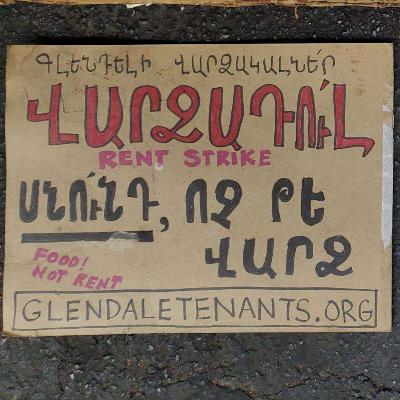 ԳԼԵՆԴԵԼԻ ՎԱՐՁԱԿԱԼՆԵ՛Ր
ՎԱՐՁԱԴՈՒ՛Լ
RENT STRIKE
ՍՆՈՒ՛ՆԴ, ՈՉ ԹԵ
ՎԱՐՁ
FOOD!
NOT RENT
GLENDALETENANTS.ORG